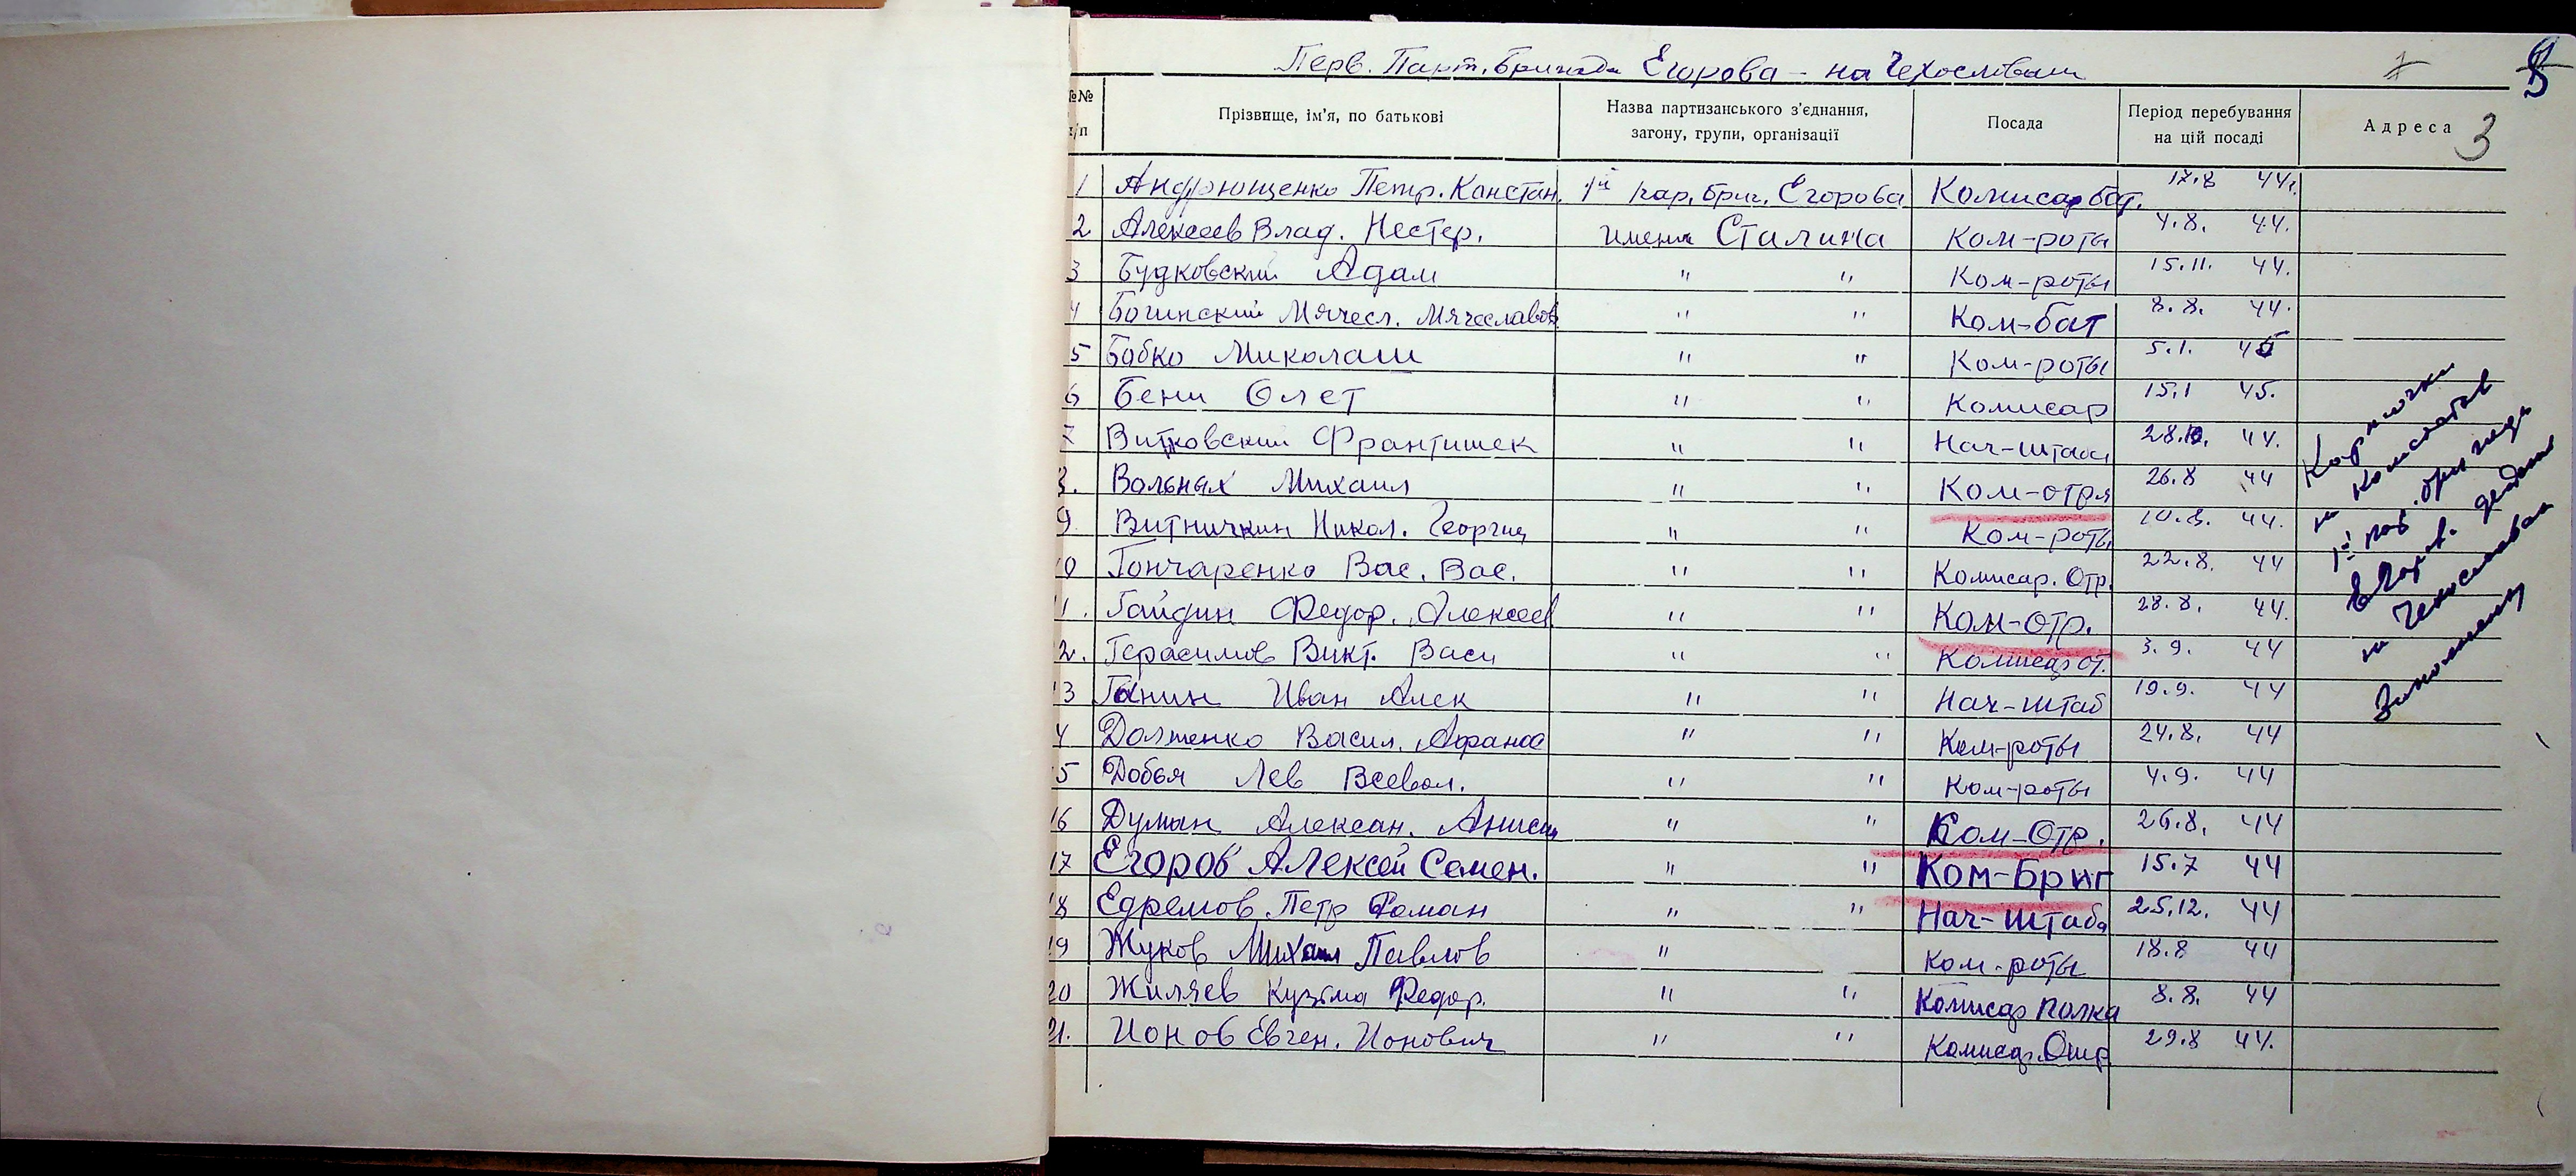 Перв. Парт. Бригада Егорова - на Чехословакии
№№ п/п
Прізвище, ім'я, по батькові
Назва партизанського з'єднання, загону, групи, організації
Посада
Період перебування на цій посаді
Адреса 3
1 Андрющенко Петр. Канстан. 1й пар. бриг. Егорова Комисар бат. 17.8 44г.
2 Алексеев Влад. Нестер. имени Сталина Ком-роты 4.8. 44.
3 Будковский Адам " " Ком-роты 15.11. 44.
4 Богинский Мячесл. Мячеславов " " Ком-бат 8.8. 44.
5 Бобко Миколаш " " Ком-роты 5.1. 45
6 Бени Олет " " Комисар 15.1 45.
7 Витковский Франтишек " " Нач-штаба 28.10. 44.
8. Вольных Михаил " " Ком-отря 26.8 44
9. Витничкин Никол. Георгиу " " Ком-роты 10.8. 44.
10 Гончаренко Вас. Вас. " " Комисар. Отр. 22.8. 44
11. Гайдин Федор. Алексеев " " Ком-Отр. 28.8. 44.
12. Герасимов Викт. Васи " " Комисар от. 3.9. 44
13 Ганин Иван Алек " " Нач-штаб 19.9. 44
14 Долженко Васил. Афанас " " Ком-роты 24.8. 44
15 Добья Лев Всевол. " " Ком-роты 4.9. 44
16 Думан Алексан. Аниси " " Ком-Отр. 26.8. 44
17 Егоров Алексей Семен. " " Ком-Бриг 15.7 44
18 Едремов Петр Роман " " Нач-штаба 25.12. 44
19 Жуков Михаил Павлов " Ком-роты 18.8 44
20 Жиляев Кузьма Федор. " " Комисар полка 8.8. 44
21. Ионов Евген. Ионович " " Комисар. Отр 29.8 44.
Карточки
на комсостав
1й пар. бригады
Егорова
на Чехословакии